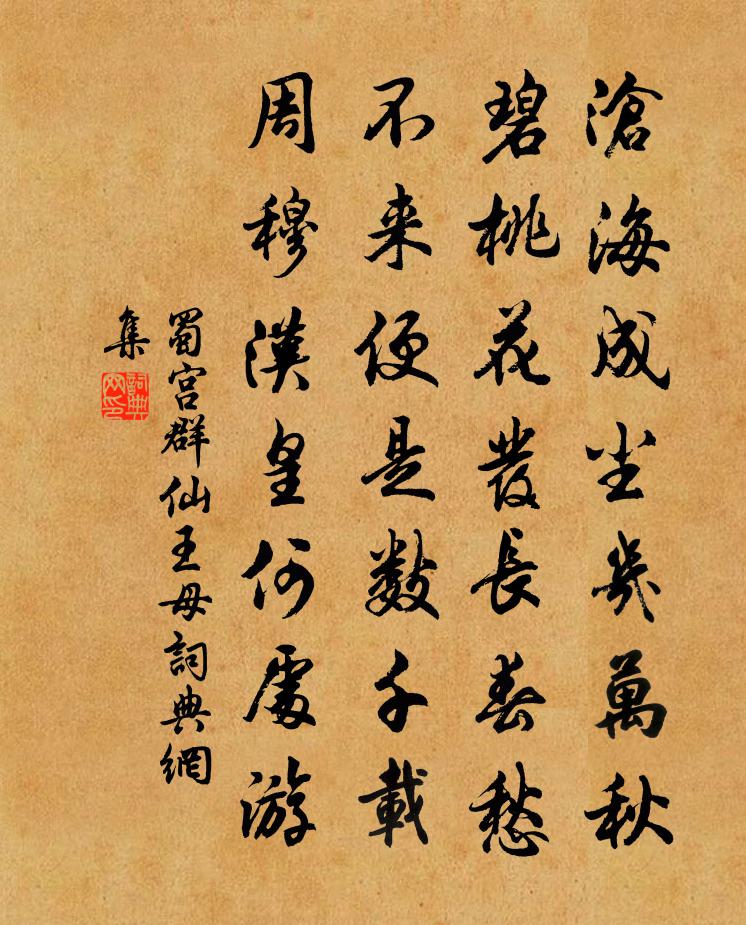 滄海成尘幾萬秋
碧桃花發長春愁
不来便是數千載
周穆漢皇何處游
蜀宫群仙王母詞典網
集
詞典
网印